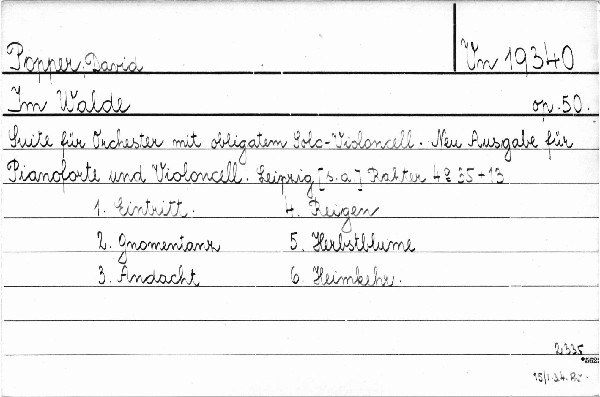 Popper, David
Vn 19340
Im Walde op. 50.
Suite für Orchester mit obligatem Solo-Violoncell. Neu Ausgabe für
Pianoforte und Violoncell. Leipzig [s.a.] Rahter 4° 35+13
1. Eintritt. 4. Reigen
2. Gnomentanz 5. Herbstblume
3. Andacht 6. Heimkehr.
2335